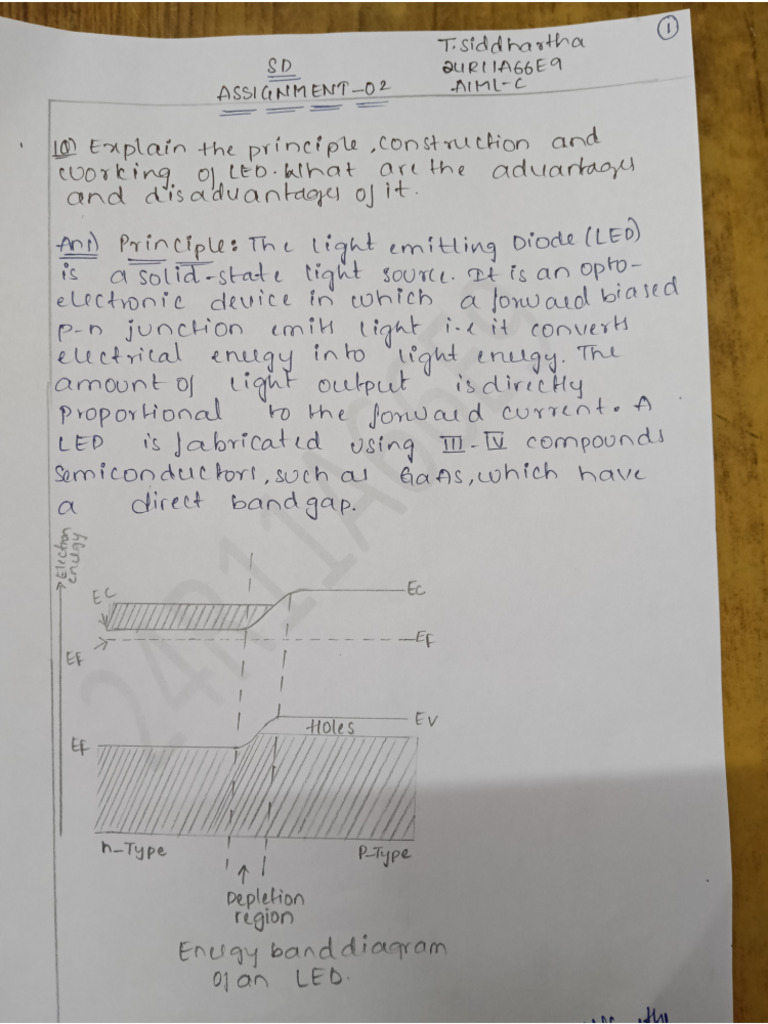 1
T.Siddhartha
SD
24R11A66E9
ASSIGNMENT-02
AIML-C
1Q) Explain the principle, construction and
working of LED. What are the advantages
and disadvantages of it.
Ans) Principle: The light emitting Diode (LED)
is a solid-state light source. It is an opto-
electronic device in which a forward biased
p-n junction emits light i.e it converts
electrical energy into light energy. The
amount of light output is directly
proportional to the forward current. A
LED is fabricated using III-IV compounds
semiconductors, such as GaAs, which have
a direct band gap.
24R11A66E9
Electron
energy
EC
EC
EF
EF
EV
Holes
EF
n-Type
P-Type
Depletion
region
Energy band diagram
of an LED.